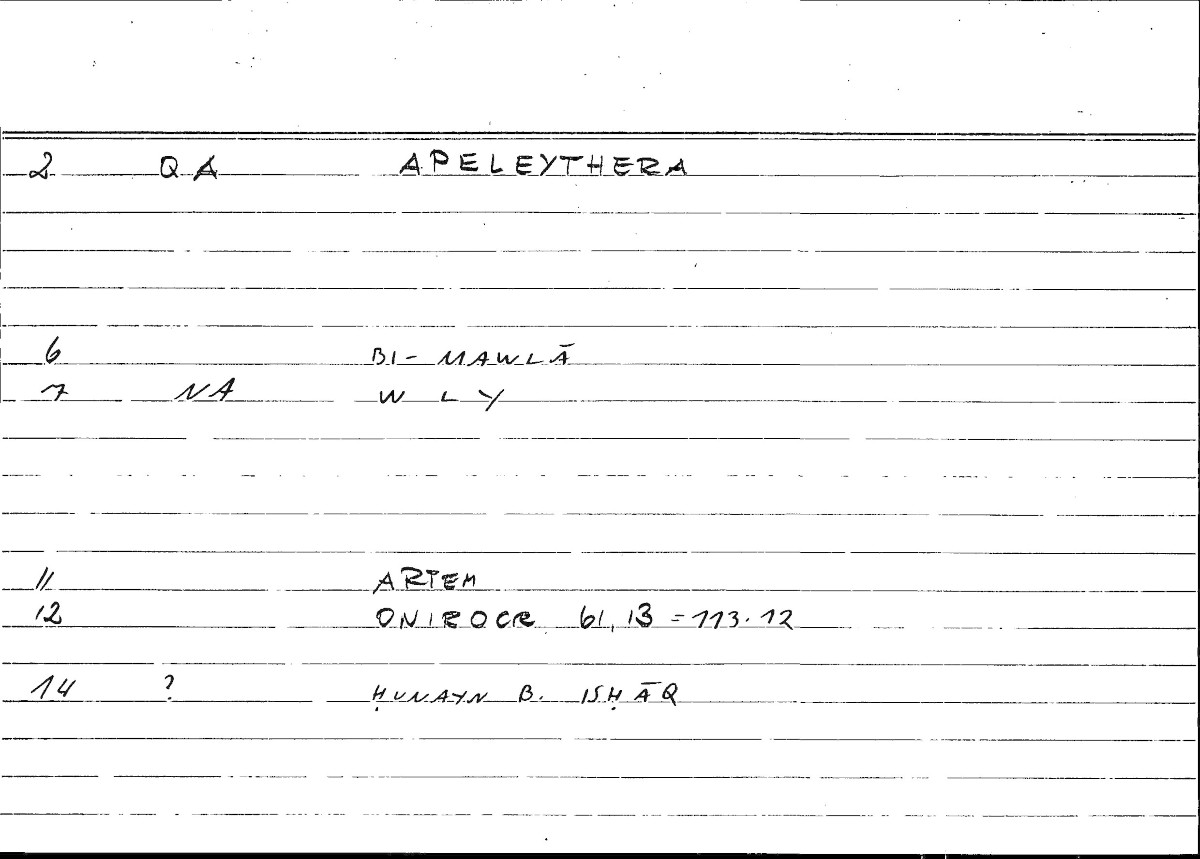 2 QA APELEYTHERA
6 BI- MAWLĀ
7 NA W L Y
11 ARTEM
12 ONIROCR 61, 13 = 113.12
14 ? ḤUNAYN B. ISḤĀQ